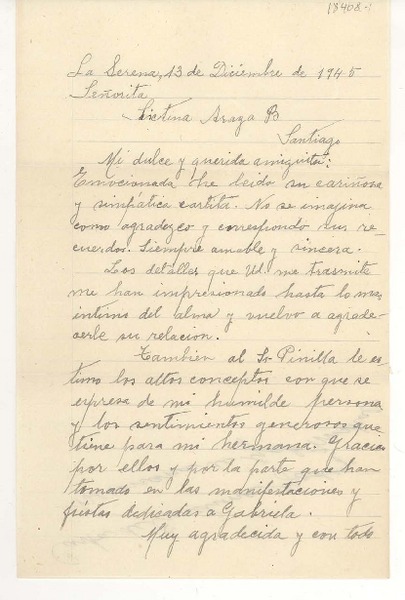 18408-1
La Serena, 13 de Diciembre de 1945
Señorita
Araya B
Santiago
Mi dulce y querida amiguita:
Emocionada he leido su cariñosa
y simpática cartita. No se imagina
como agradezco y correspondo sus re-
cuerdos. Siempre amable y sincera.
Los detalles que Ud. me trasmite
me han impresionado hasta lo mas
intimo del alma y vuelvo a agrade-
cerle su relacion.
Tambien al Sr Pinilla le es-
timo los altos conceptos con que se
expresa de mi humilde persona
y los sentimientos generosos que
tiene para mi hermana. Gracias
por ellos y por la parte que han
tomado en las manifestaciones y
fiestas dedicadas a Gabriela.
Muy agradecida y con todo